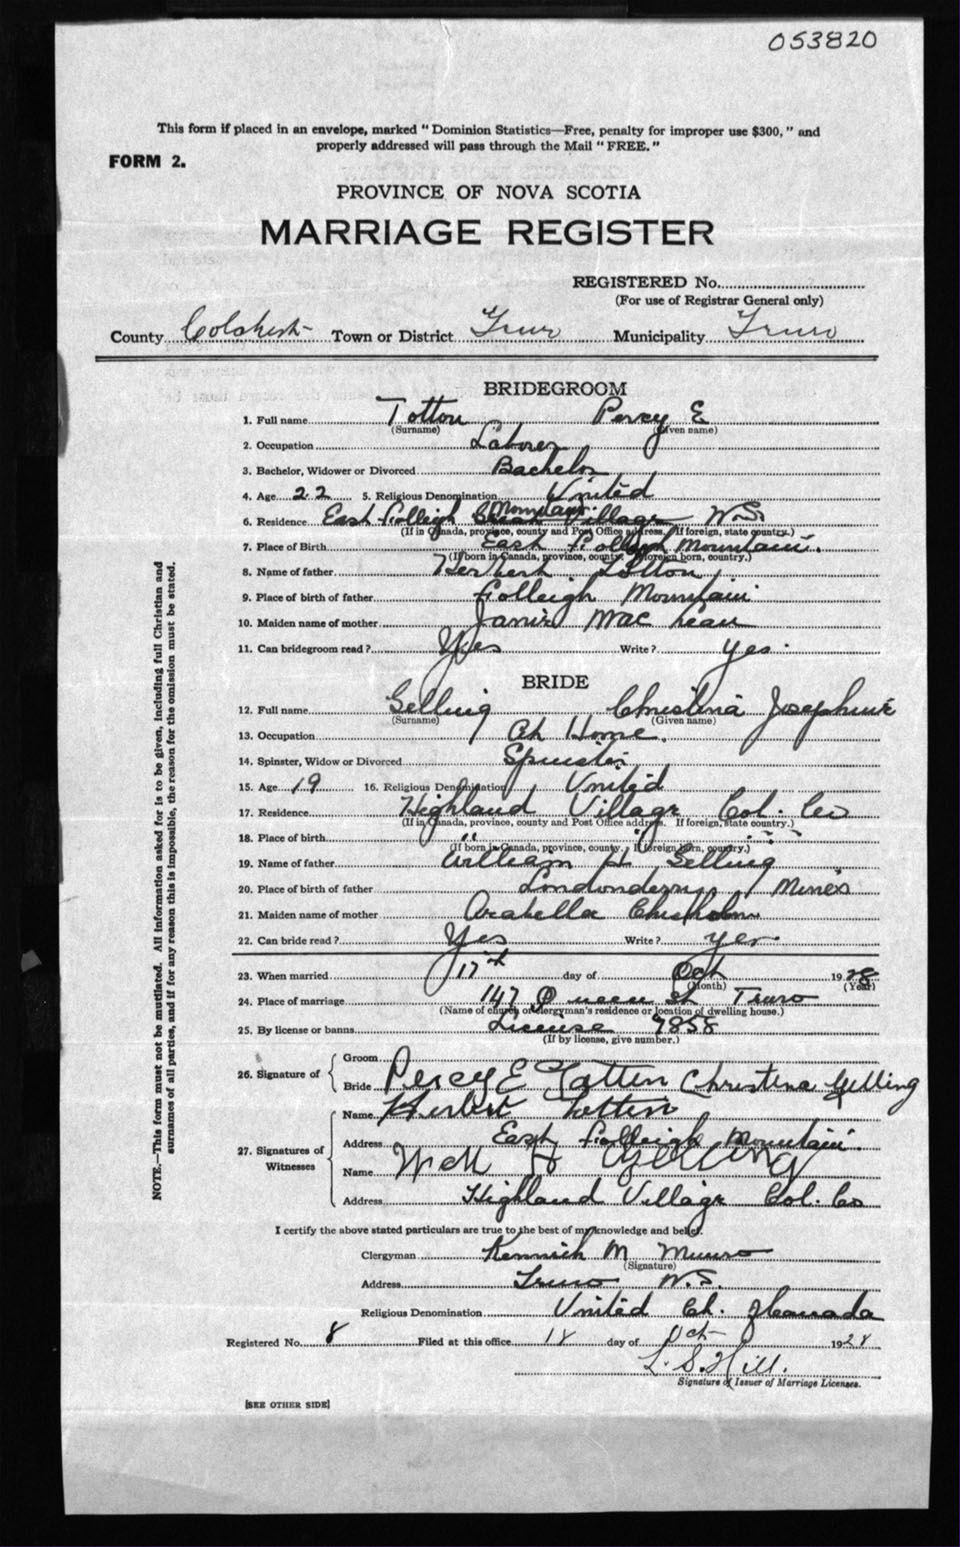 053820
This form if placed in an envelope, marked "Dominion Statistics—Free, penalty for improper use $300," and
properly addressed will pass through the Mail "FREE."
FORM 2.
PROVINCE OF NOVA SCOTIA
MARRIAGE REGISTER
REGISTERED No.
(For use of Registrar General only)
County Colchester Town or District Truro Municipality Truro
BRIDEGROOM
1. Full name Totton Percy E
(Surname) (Given name)
2. Occupation Laborer
3. Bachelor, Widower or Divorced Bachelor
4. Age 22 5. Religious Denomination United
Mountain
6. Residence East Folleigh Village N.S.
(If in Canada, province, county and Post Office address. If foreign, state country.)
7. Place of Birth East Folleigh Mountain.
(If born in Canada, province, county. If foreign born, country.)
8. Name of father Herbert Totton
9. Place of birth of father Folleigh Mountain
10. Maiden name of mother Janie MacLean
11. Can bridegroom read? Yes Write? Yes.
BRIDE
12. Full name Gelling Christina Josephine
(Surname) (Given name)
13. Occupation At Home.
14. Spinster, Widow or Divorced Spinster
15. Age 19 16. Religious Denomination United
17. Residence Highland Village Col. Co
(If in Canada, province, county and Post Office address. If foreign, state country.)
18. Place of birth " " " "
(If born in Canada, province, county. If foreign born, country.)
19. Name of father William H Gelling
20. Place of birth of father Londonderry Mines
21. Maiden name of mother Arabella Chisholm
22. Can bride read? Yes Write? Yes
23. When married 17th day of Oct 1928
(Month) (Year)
24. Place of marriage 147 Queen St Truro
(Name of church or clergyman's residence or location of dwelling house.)
25. By license or banns License 9858
(If by license, give number.)
26. Signature of
Groom
Bride Percy E Totten Christina Gelling
27. Signatures of Witnesses
Name Herbert Totten
Address East Folleigh Mountain.
Name Will H Gelling
Address Highland Village Col. Co
I certify the above stated particulars are true to the best of my knowledge and belief.
Clergyman Kenneth M Munro
(Signature)
Address Truro N.S.
Religious Denomination United Ch. of Canada
Registered No. 8 Filed at this office 18 day of Oct 1928
L. S. Hill.
Signature of Issuer of Marriage Licenses.
[SEE OTHER SIDE]
NOTE.—This form must not be mutilated. All information asked for is to be given, including full Christian and
surnames of all parties, and if for any reason this is impossible, the reason for the omission must be stated.